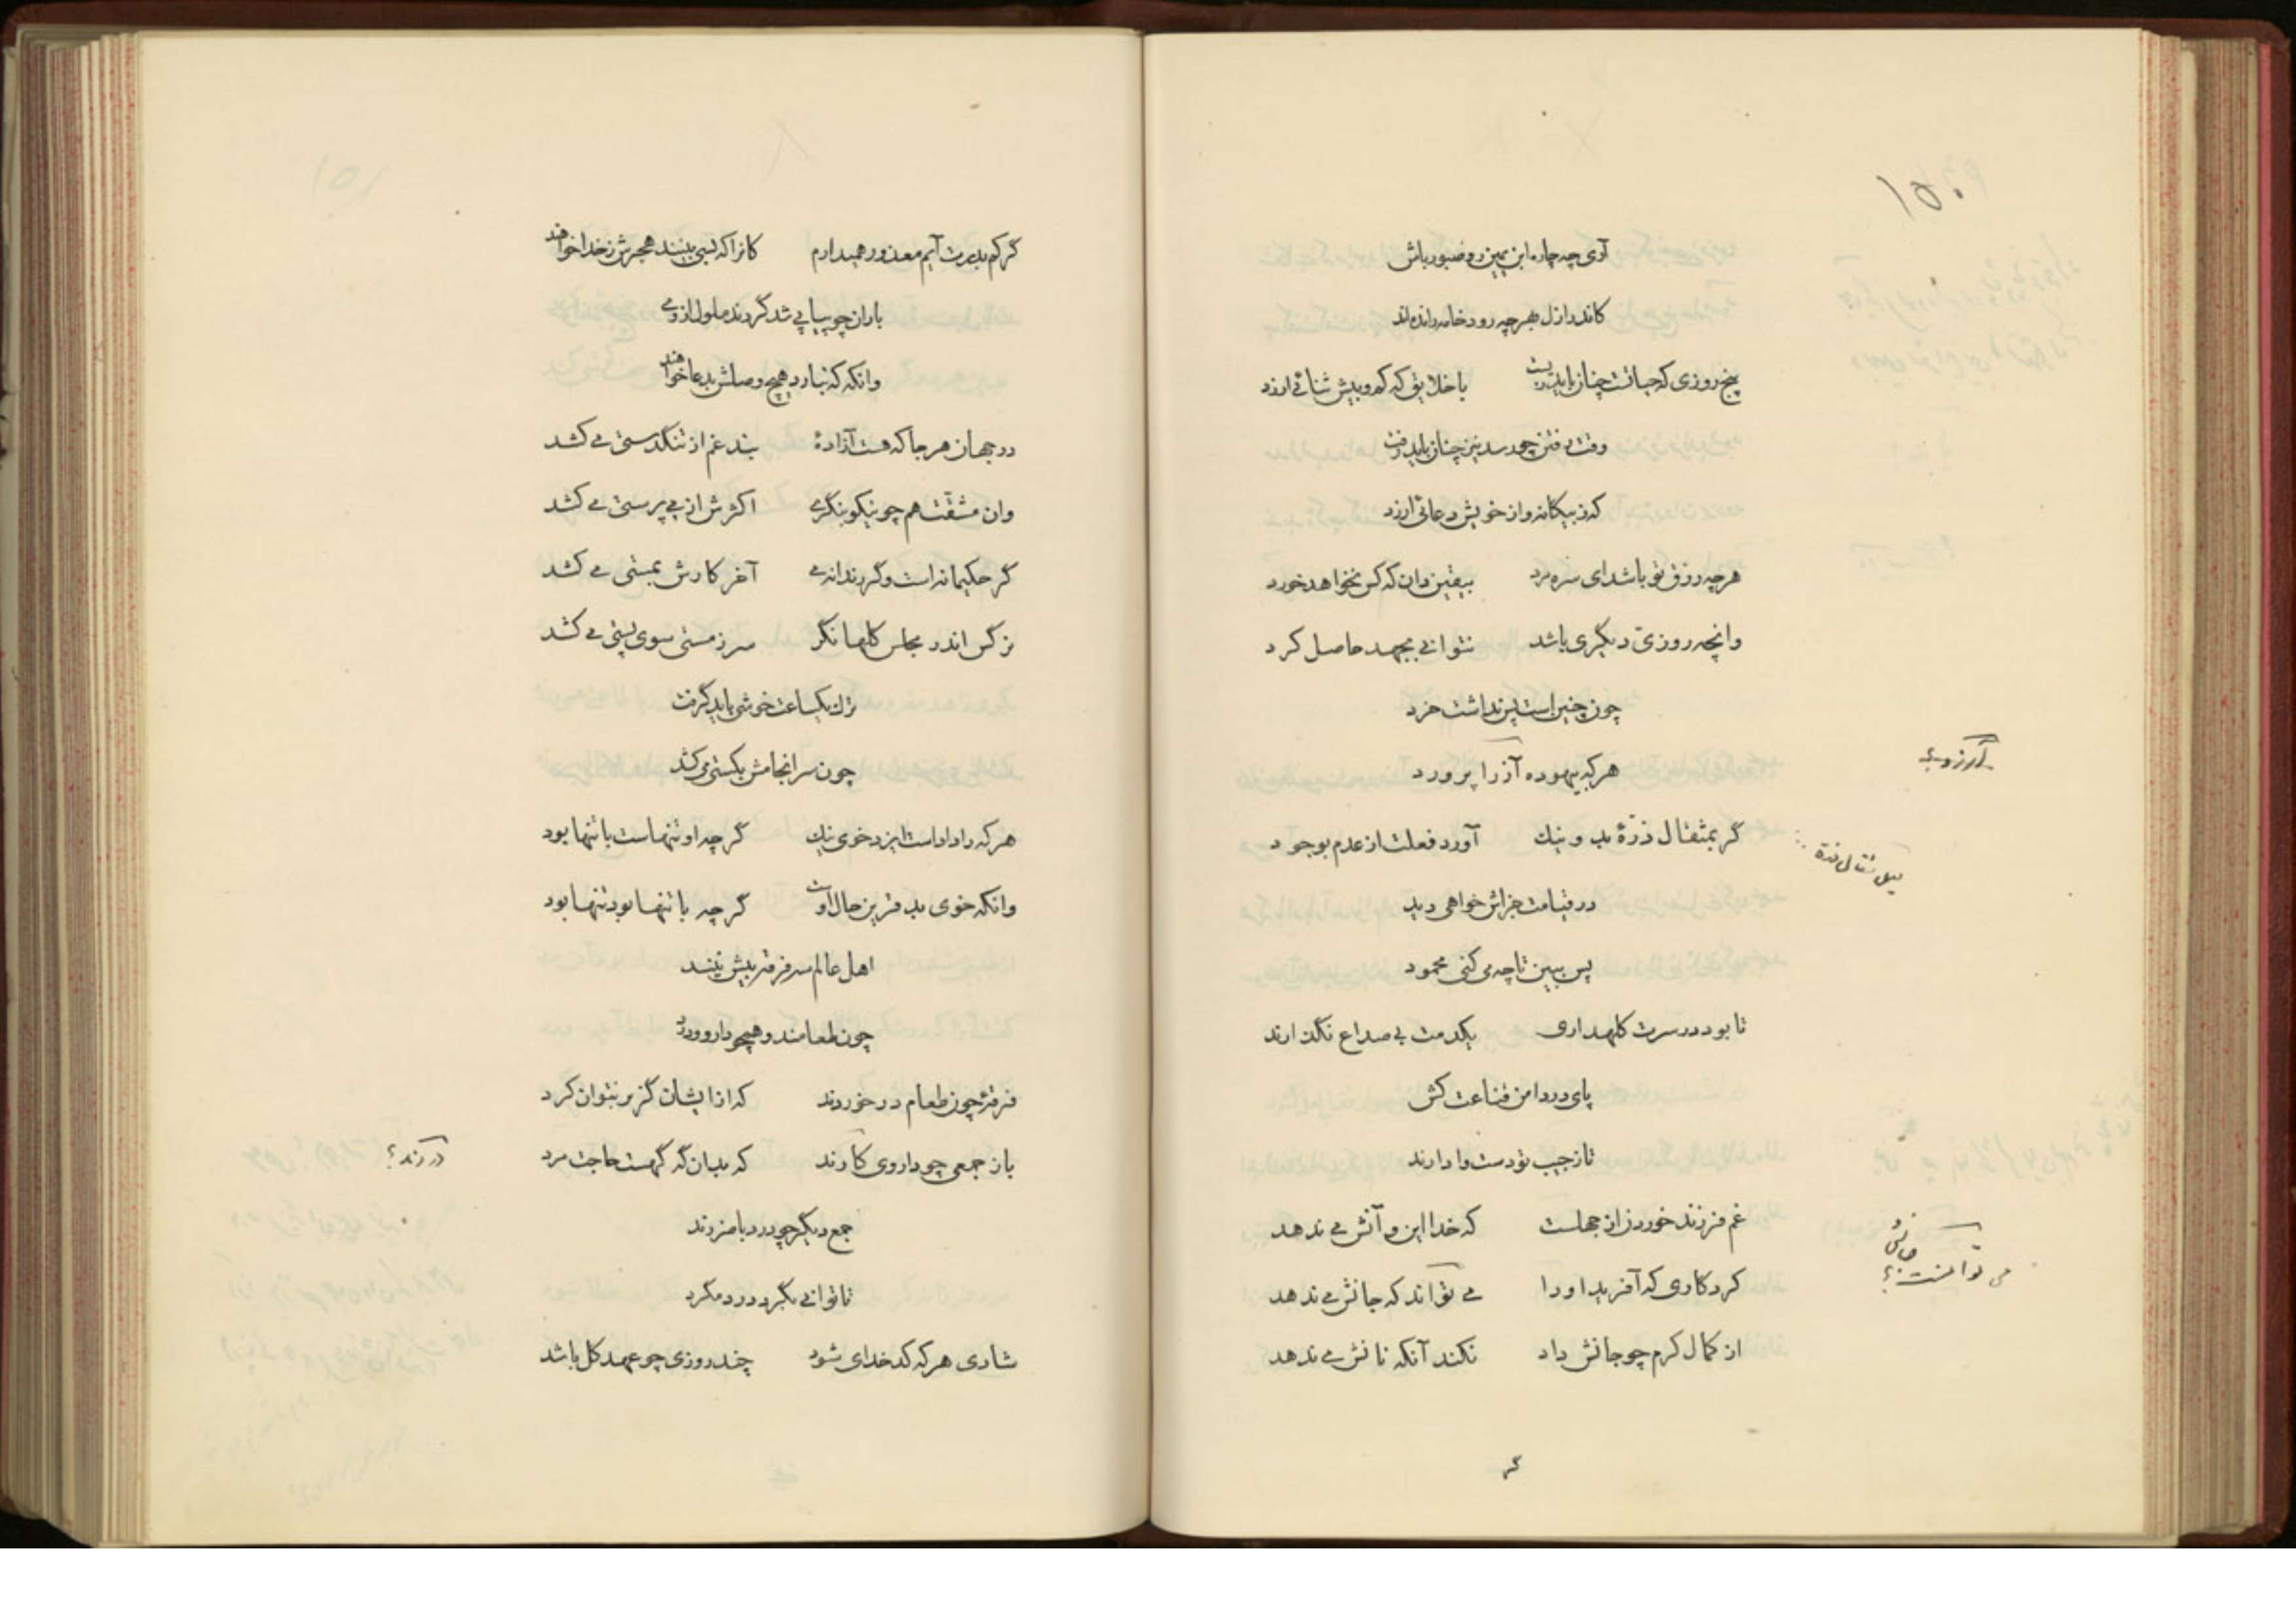 ۱۵۰
آری چه چاره ابن یمین رو صبور باش
کاندر ازل بهر چه رود خامه رانده‌اند
پنج روزی که حیاتت چنان باید زیست باخلایق که کم و بیش ثنائی ارزد
وقت رفتن چو رسد نیز چنان باید رفت
که ز بیگانه و از خویش دعائی ارزد
هر چه رزق تو باشد ای سره مرد بیقین دان که کس نخواهد خورد
وانچه روزیّ دیگری باشد نتوانی بجهد حاصل کرد
چون چنین است پس نداشت خرد
هر که بیهوده آز را پرورد
آرزو؟
گر بمثقال ذرّهٔ بد و نیک آورد فعلت از عدم بوجود
مثقال ذرة
در قیامت جزاش خواهی دید
پس ببین تا چه می کنی محمود
تا بود در سرت کلهداری یکدمت بی صداع نگذارند
پای در دامن قناعت کش
تا ز جیب تو دست وا دارند
غم فرزند خوردن از جهلست که خدا این و آنش می ندهد
کردکاری که آفرید او را می تواند که جانش می ندهد
می توانست جانش؟
از کمال کرم چو جانش داد نکند آنکه نانش می ندهد
گر
گر کم بدرت آیم معذور همیدارم کانرا که بسی بینند هجرش ز خدا خواهند
باران چو پیاپی شد گردند ملول از وی
وانگه که نبارد هیچ وصلش بدعا خواهند
در جهان هر جا که هست آزادهٔ بند غم از تنگدستی می کشد
وان مشقّت هم چو نیکو بنگری اکثرش از می پرستی می کشد
گر حکیمانه است و گر رندانه می آخر کارش بمستی می کشد
نرگس اندر مجلس گلها نگر سر ز مستی سوی پستی می کشد
ترک یکساعت خوشی باید گرفت
چون سرانجامش بگستی می کشد
هر که را داداست ایزد خوی نیک گر چه او تنهاست با تنها بود
وانکه خوی بد قرین حال اوست گر چه با تنها بود تنها بود
اهل عالم سه فرقه بیش نیند
چون طعامند و همچو دارو و درد
فرقهٔ چون طعام در خوردند که از ایشان گزیر نتوان کرد
باز جمعی چو داروی کارند که بدان گه گهست حاجت مرد
در کارند؟
جمع دیگر چو درد با ضررند
تا توانی بگرد درد مگرد
شادی هر که کدخدای شود چند روزی چو عهد گل باشد